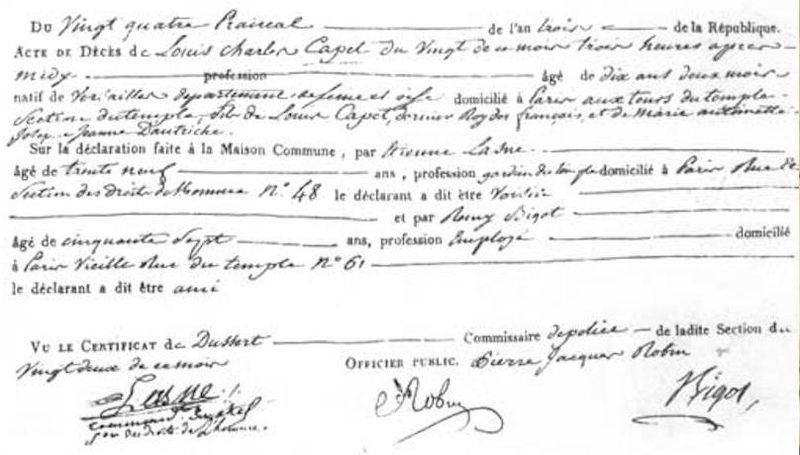 Du Vingt quatre Prairial de l'an trois de la République.
Acte de Décès de Louis Charles Capet du Vingt de ce mois trois heures apres
midy profession âgé de dix ans deux mois
natif de Versailles departement de seine et oise domicilié à Paris aux tours du temple
Section du temple, fils de Louis Capet, dernier Roy des français, et de Marie antoinette
Josephe Jeanne Dautriche.
Sur la déclaration faite à la Maison Commune, par Etienne Lasne
âgé de trente neuf ans, profession gardien du temple domicilié à Paris, Rue et
Section des droits de l'homme N.° 48 le déclarant a dit être Voisin
et par Remy Bigot
âgé de cinquante Sept ans, profession Employé domicilié
à Paris Vieille Rue du temple N.° 61
le déclarant a dit être ami
Vu le Certificat de Dussert Commissaire de police de ladite Section du
Vingt deux de ce mois Officier public. Pierre Jacques Robin
Lasne Robin Bigot,
Son des droits de l'homme.